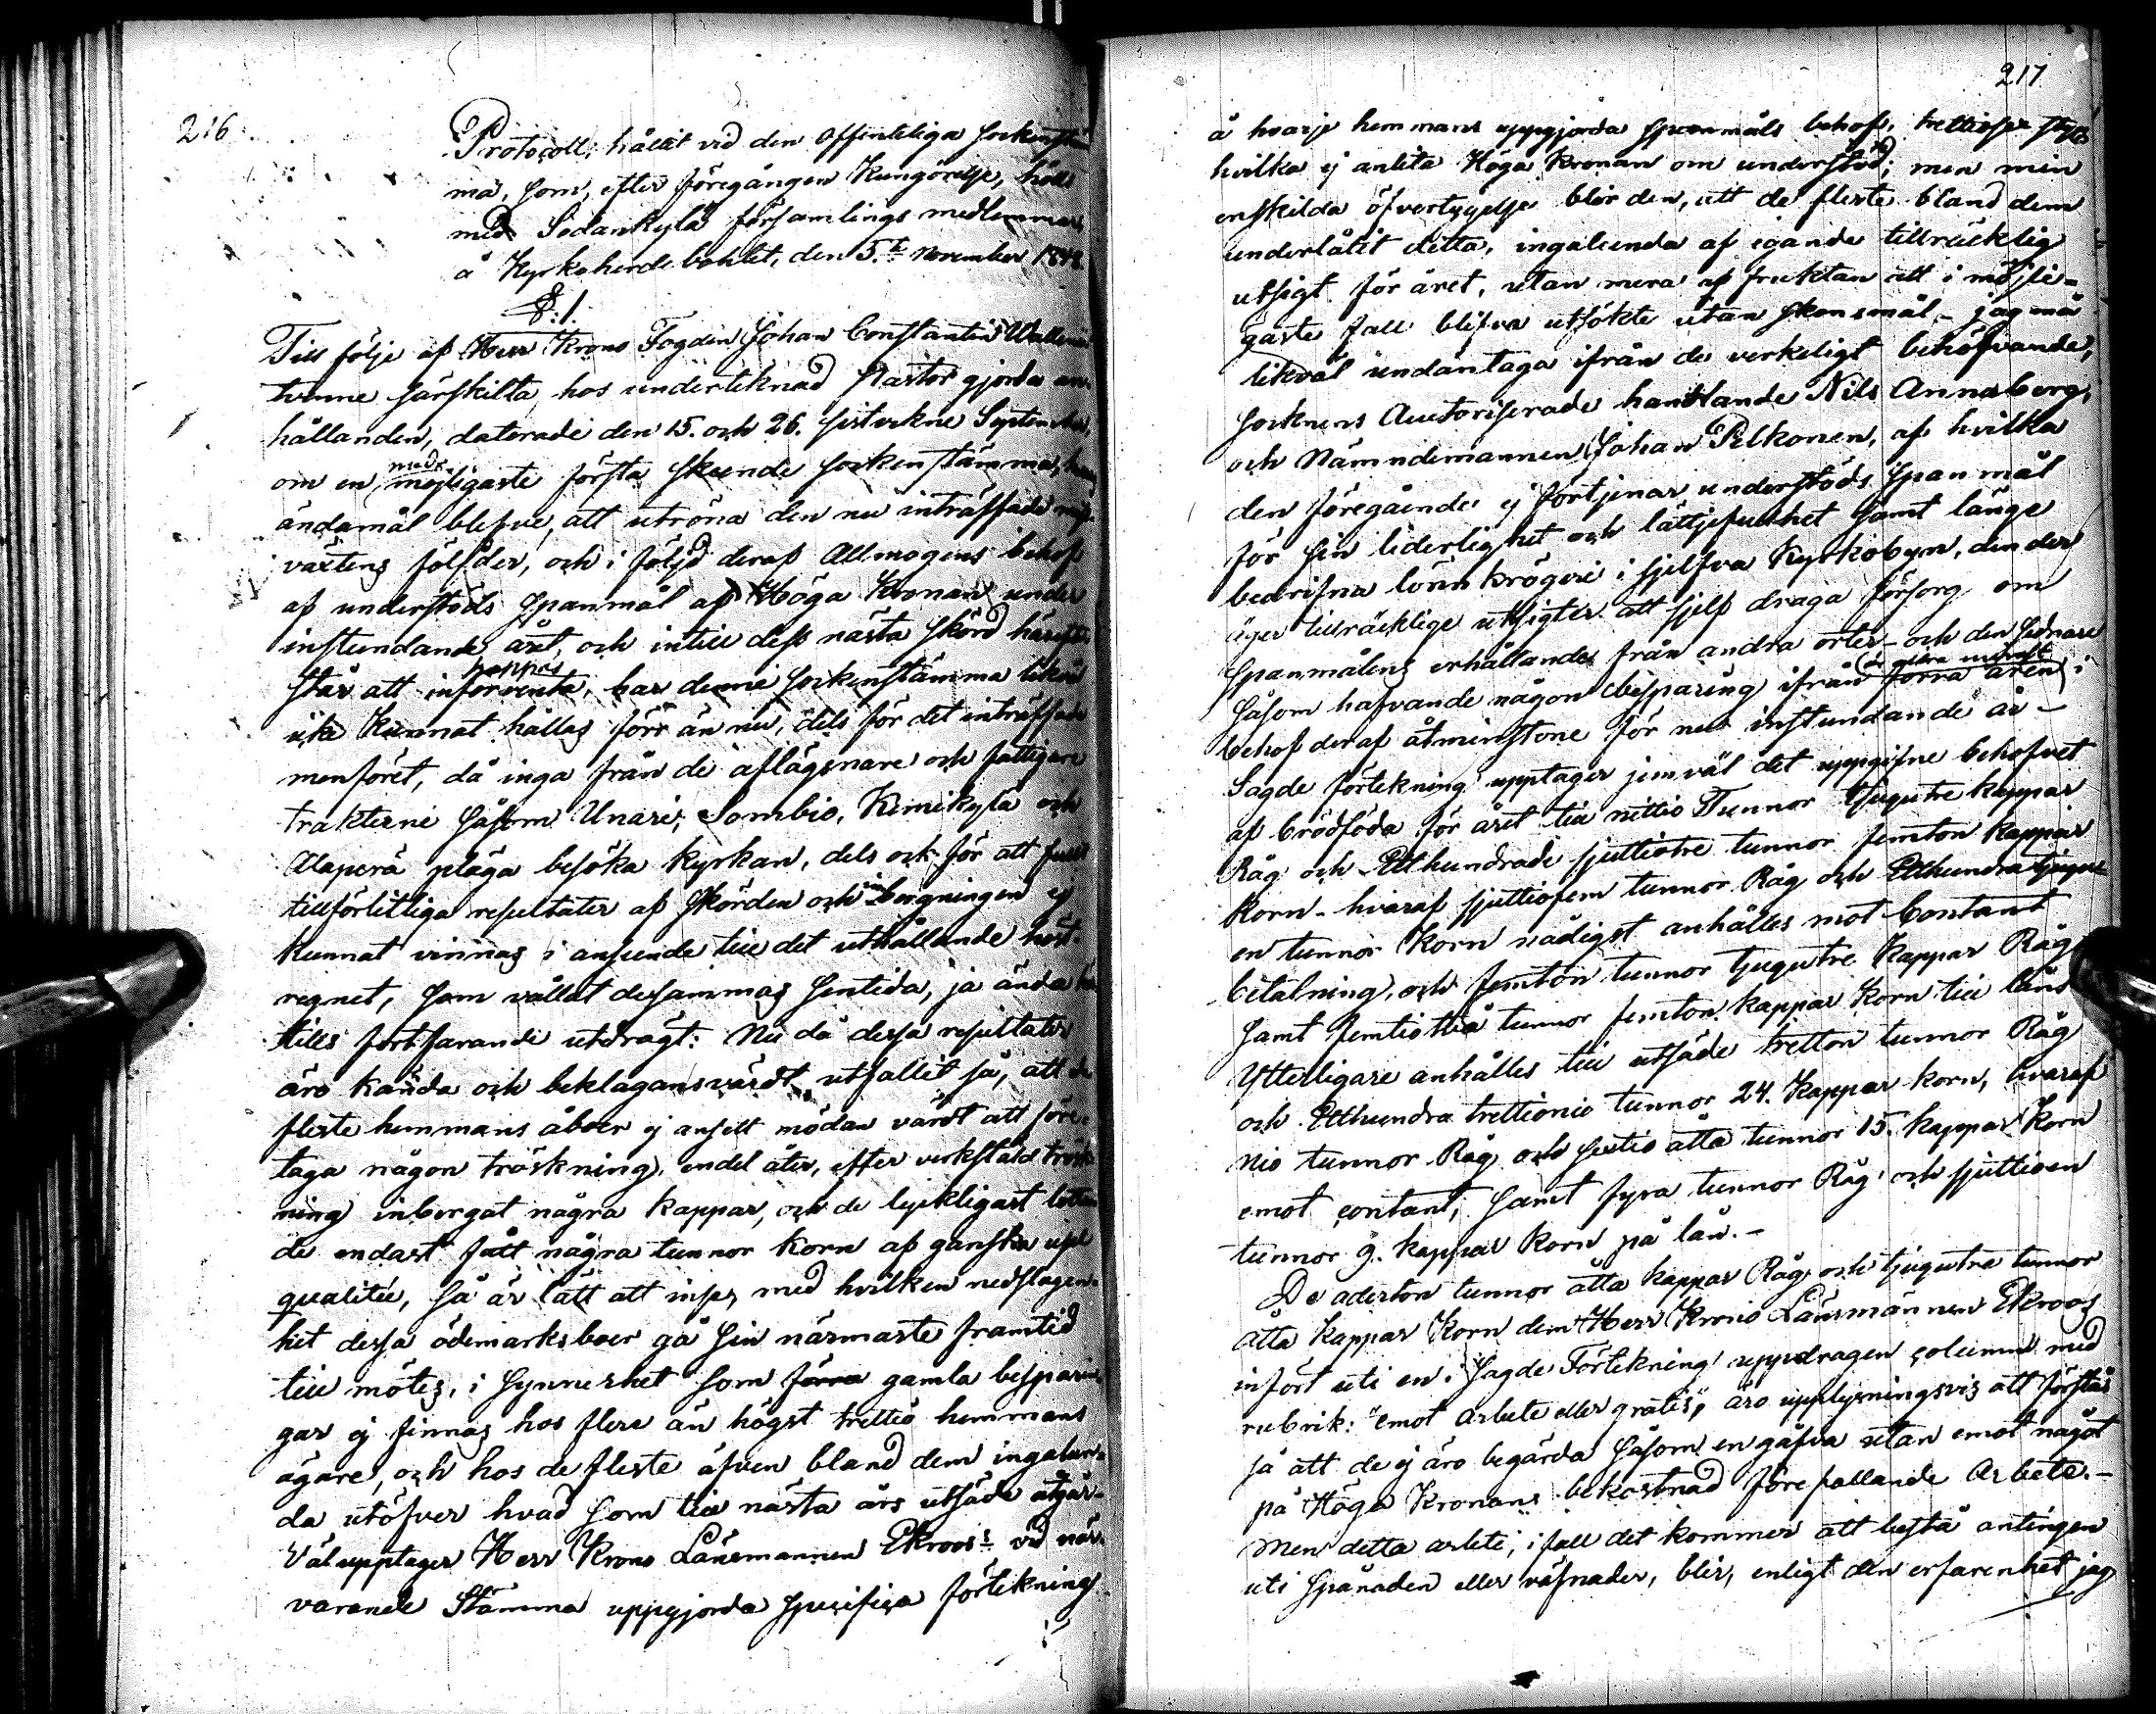 216.
Protocoll, hållit vid den offenteliga Sockenstäm
ma, som, efter föregången Kungörelse, hölls
med Sodankylä församlings medlemmar,
å Kyrkoherde bohlet, den 5.te November 18
§:1.
Till följe af Herr Krono Fogden Johan Constantin Wallenii
tvenne särskilta, hos undertecknad Pastor gjorda an-
hållanden, daterade den 15. och 26. sistvekne September,
om en med möjligaste första skeende sockenstämma,
ändamål blefve, att utröna den nu inträffade miss-
växtens följder, och i följd deraf Allmogens behof
af understöds spanmål af Höga Kronan under
instundande året, och intill dess nästa skörd härefter
står att inforventa hoppas, har denne sockenstämma likväl
icke kunnat hållas förr än nu, dels för det inträffade
menföret, då inga från de aflägsnare och fattigare
trakterne såsom Unari, Sombio, Kemikylä och
Alaperä pläga besöka kyrkan, dels ock för att fullt
tillförlitliga resultater af skörden och inbergningen ej
kunnat vinnas i anseende till det uthållande höst-
regnet, som vållat desammas sentida, ja ända
tills fortfarande utdrägt: Nu då dessa resultater
äro kända och beklagansvärdt utfallit så, att de
fleste hemmans åboer ej ansett mödan värdt att före-
taga någon tröskning, endel åter, efter verkstäld trösk-
ning inbergat några kappar, och de lyckligast lottan
de endast fått några tunnor korn af ganska usel
qualitée, så är lätt att inse, med hvilken nedslagen-
het dessa ödemarksboer gå sin närmaste framtid
till mötes, i synnerhet som förra gamla besparin-
gar ej finnas hos flere än högst trettio hemmans
ägare, och hos de fleste äfven bland dem ingalun-
da utöfver hvad som till nästa års utsäde åtgår.
Väl upptager Herr Krono Länsmannen Ekroos's vid när-
varande Stämma uppgjorda specifica förtekning
217
å hvarje hemmans uppgjorda spanmåls behof, trettiosex stycken
hvilka ej anlita Höga Kronan om understöd; men min
enskilda öfvertygelse blir den, att de fleste bland dem
underlåtit detta, ingalunda af egande tillräcklig
utsigt för året, utan mera af fruktan att i möjli-
gaste fall blifva utsökte utan skonsmål – jag må
likväl undantaga ifrån de verkeligt behöfvande,
Socknens Auctoriserade handlande Nils Annaberg,
och Nämndemannen Johan Pelkonen, af hvilka
den föregående ej förtjenar understöds spanmål
för sin liderlighet och lättjefullhet samt länge
bedrifna lönnkrögeri i sjelfva Kyrkobyn, den der
äger tillräcklige utsigter att sjelf draga försorg om
Spanmålens erhållande från andra orter – och den sednare
såsom hafvande någon besparing ifrån förra åren i
behof deraf åtminstone för nu instundande år –
Sagde förtekning upptager jemväl det uppgifne behofvet
af brödföda för året till nittio Tunnor tjugutre kappar
Råg och Etthundrade sjuttiotre tunnor femton kappar
Korn – hvaraf sjuttiofem tunnor Råg och Etthundra tjugu-
en tunnor Korn nådigst anhålles mot Contant
betalning, och femton tunnor tjugutre kappar Råg
samt femtiotvå tunnor femton kappar Korn till låns
Ytterligare anhålles till utsäde tretton tunnor Råg
och Etthundra trettionio tunnor 24. kappar korn, hvaraf
nio tunnor Råg och sextio åtta tunnor 15. kappar Korn
emot contant, samt fyra tunnor Råg och sjuttioen
tunnor 9. kappar Korn på lån. –
De aderton tunnor åtta kappar Råg och tjugutre tunnor
åtta kappar Korn dem Herr Krono Länsmannen Ekroos
infört uti en i sagde Förtekning uppdragen columnn med
rubrik: "emot arbete eller gratis", äro upplysningsvis att förstås
så att de ej äro begärda såsom en gåfva utan emot något
på Höga Kronans bekostnad förefallande Arbete. –
Men detta arbete, i fall det kommer att bestå antingen
uti spånaden eller väfnader, blir, enligt den erfarenhet jag